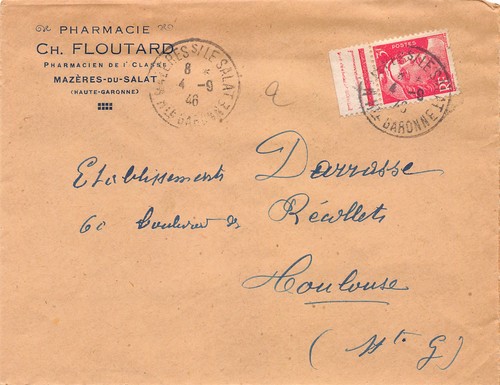 PHARMACIE
CH. FLOUTARD
PHARMACIEN DE 1e CLASSE
MAZÈRES-DU-SALAT
(HAUTE-GARONNE)
MAZERES S/LE SALAT
8 *
4 -9
46
Hte GARONNE
POSTES
4 -9
46
Hte GARONNE
a
Etablissements Darrasse
60 Boulevard des Récollets
Toulouse
(Hte G)